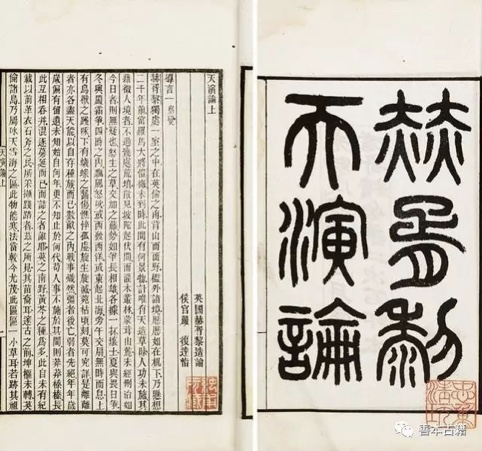 赫胥黎
天演論
天演論上
英國赫胥黎造論
侯官嚴 復達恉
導言一 察變
赫胥黎獨處一室之中在英倫之南背山而面野檻外諸境歷歷如在机下乃懸想
二千年前當羅馬大將愷徹未到時此間有何景物計惟有天造草昧人功未施其
藉徵人境者不過幾處荒墳散見坡陀起伏間而灌木叢林蒙茸山麓未經刪治如
今日者則無疑也怒生之草交加之藤勢如爭長相雄各據一抔壤土夏與畏日爭
冬與嚴霜爭四時之內飄風怒吹或西發西洋或東起北海旁午交扇無時而息上
有鳥獸之踐啄下有蟻蝝之齧傷憔悴孤虛旋生旋滅菀枯頃刻莫可究詳是離離
者亦各盡天能以自存種族而已數畝之內戰事熾然彊者後亡弱者先絕年年歲
歲偏有留遺未知始自何年更不知止於何代苟人事不施於其間則莽莽榛榛長
此互相吞并混逐蔓延而已而詰之者誰耶英之南野黃芩之種為多此自未有紀
載以前革衣石斧之民所採擷踐踏者茲之所見其苗裔耳邃古之前坤樞未轉英
倫諸島乃屬冰天雪海之區此物能寒法當較今尤茂此區區一小草耳若跡其祖
天演論上
善本古籍